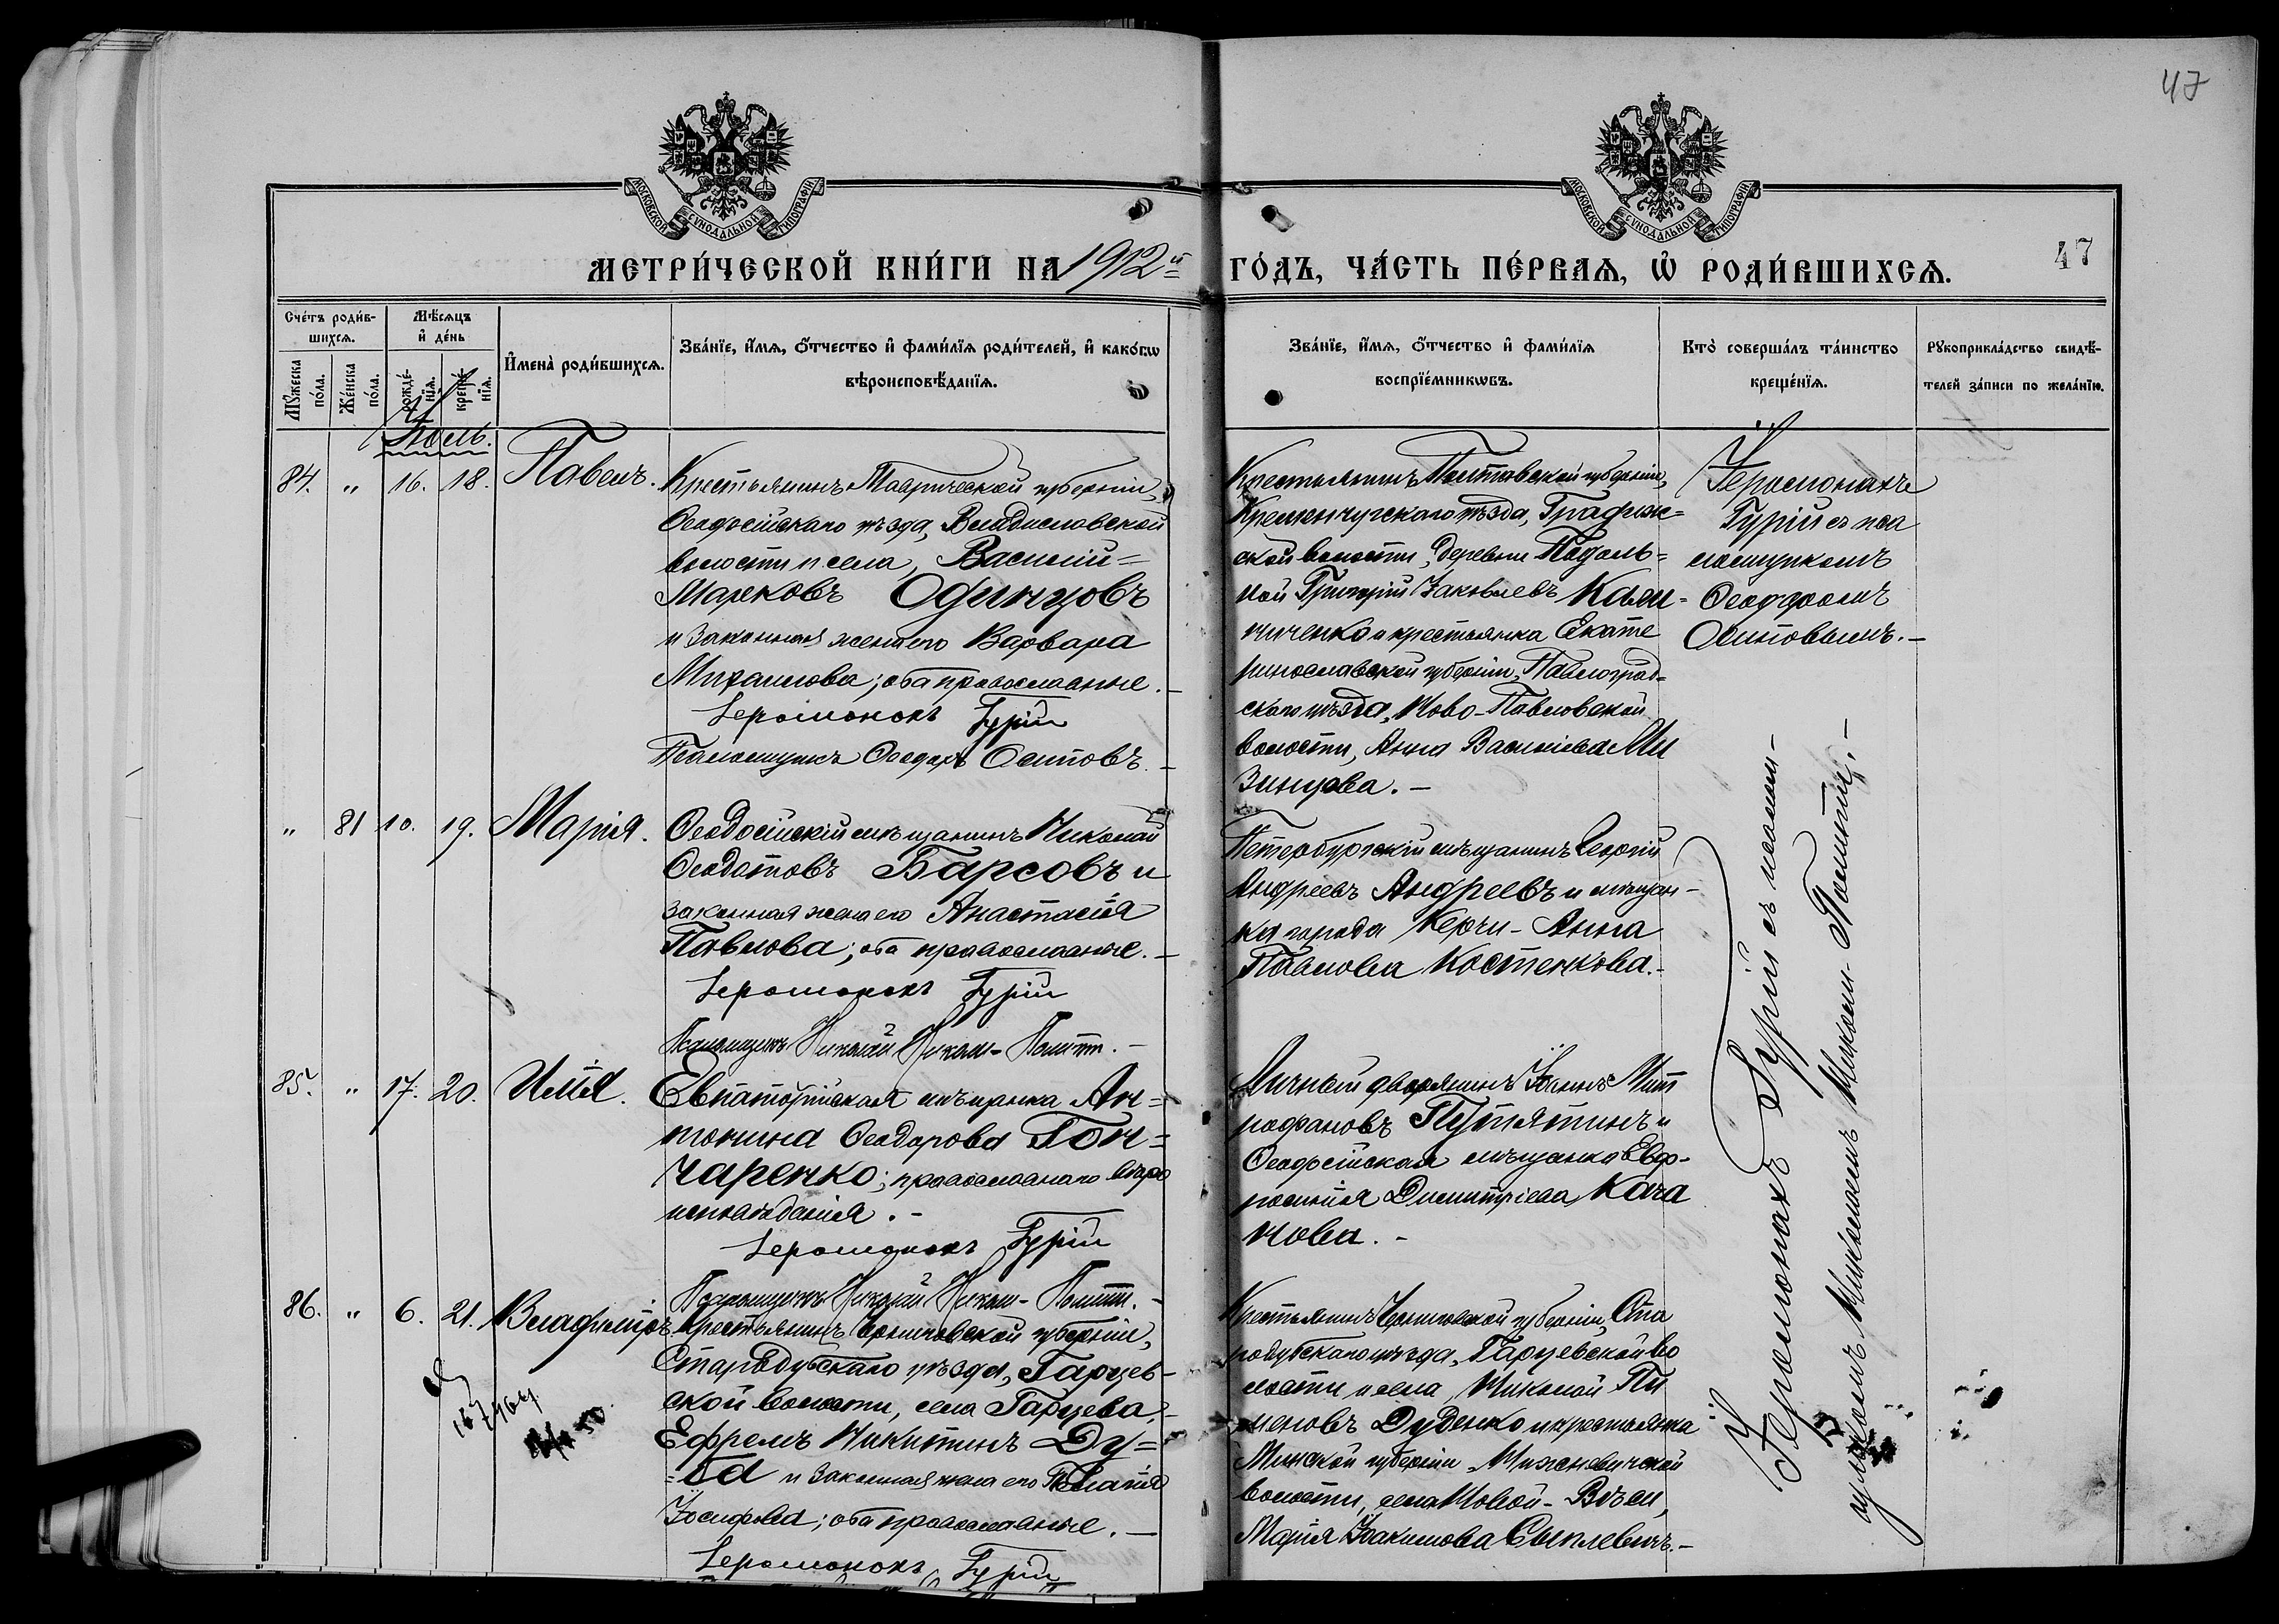 47
МОСКОВСКОЙ СУНОДАЛЬНОЙ ТИПОГРАФІИ
МОСКОВСКОЙ СУНОДАЛЬНОЙ ТИПОГРАФІИ
МЕТРИ́ЧЕСКОЙ КНИ́ГИ НА 1912й
ГО́ДЪ, ЧА́СТЬ ПЕ́РВАѦ, Ѡ҆ РОДИ́ВШИХСѦ.
47
Сче́тъ роди́в-
шихсѧ.
Мѣ́сѧцъ
и҆ де́нь
Мꙋ́жеска
по́ла.
Же́нска
по́ла.
рожде́-
нїѧ.
креще́-
нїѧ.
И҆мена̀ роди́вшихсѧ.
Зва́нїе, и҆́мѧ, ѻ҆́тчество и҆ фами́лїѧ роди́телей, и҆ како́гѡ
вѣроисповѣ́данїѧ.
Зва́нїе, и҆́мѧ, ѻ҆́тчество и҆ фами́лїѧ
воспрїе́мникѡвъ.
Кто̀ соверша́лъ та́инство
креще́нїѧ.
Рꙋкоприкла́дство свидѣ́-
телей за́писи по жела́нїю.
Іюль.
84. " 16. 18. Павелъ.
Крестьянинъ Таврической губерніи,
Ѳеодосійскаго уѣзда, Владиславской
волости и села, Василій
Марковъ Одинцовъ
и законная жена его Варвара
Михаилова; оба православные.
Іеромонахъ Гурій
Псаломщикъ Ѳеодоръ Осиповъ.
Крестьянинъ Полтавской губерніи,
Кременчугскаго уѣзда, Градиж=
ской волости, деревни Подоль=
ной Григорій Іаковлевъ Кали=
ниченко и крестьянка Екате
ринославской губерніи, Павлоград=
скаго уѣзда, Ново-Павловской
волости, Анна Васильева Ми
зинцова.-
Іеромонахъ
Гурій съ пса
ломщикомъ
Ѳеодоромъ
Осиповымъ.-
" 81 10. 19. Марія.
Ѳеодосійскій мѣщанинъ Николай
Ѳеодотовъ Барсовъ и
законная жена его Анастасія
Павлова; оба православные.-
Іеромонахъ Гурій
Псаломщикъ Николай Николи-Полити.-
Петербургскій мѣщанинъ Георгій
Андреевъ Андреевъ и мѣщан-
ка города Керчи-Анна
Павлова Костенкова.-
85. " 17. 20. Илія.
Евпаторійская мѣщанка Ан=
тонина Ѳеодорова Гон=
чаренко; православнаго вѣро
исповѣданія.-
Іеромонахъ Гурій
Псаломщикъ Николай Николи-Полити.-
Личный дворянинъ Іоаннъ Мит
рофановъ Путятинъ и
Ѳеодосійская мѣщанка Евф-
росинія Димитріева Кача
нова.-
86. " 6. 21. Владиміръ
Крестьянинъ Черниговской губерніи,
Стародубскаго уѣзда, Гарцев-
ской волости, села Гарцева,
Ефремъ Никитинъ Ду=
=да и законная жена его Пелагія
Іосифова; оба православные.-
Іеромонахъ Гурій
Крестьянинъ Черниговской губерніи, Ста
родубскаго уѣзда, Гарцевской во
лости и села, Николай Пи
меновъ Дуденко и крестьянка
Минской губерніи,
волости, села Новой-
Марія Іоакимова
Іеромонахъ Гурій съ псалом-
щикомъ Николаемъ Николи-Полити.-